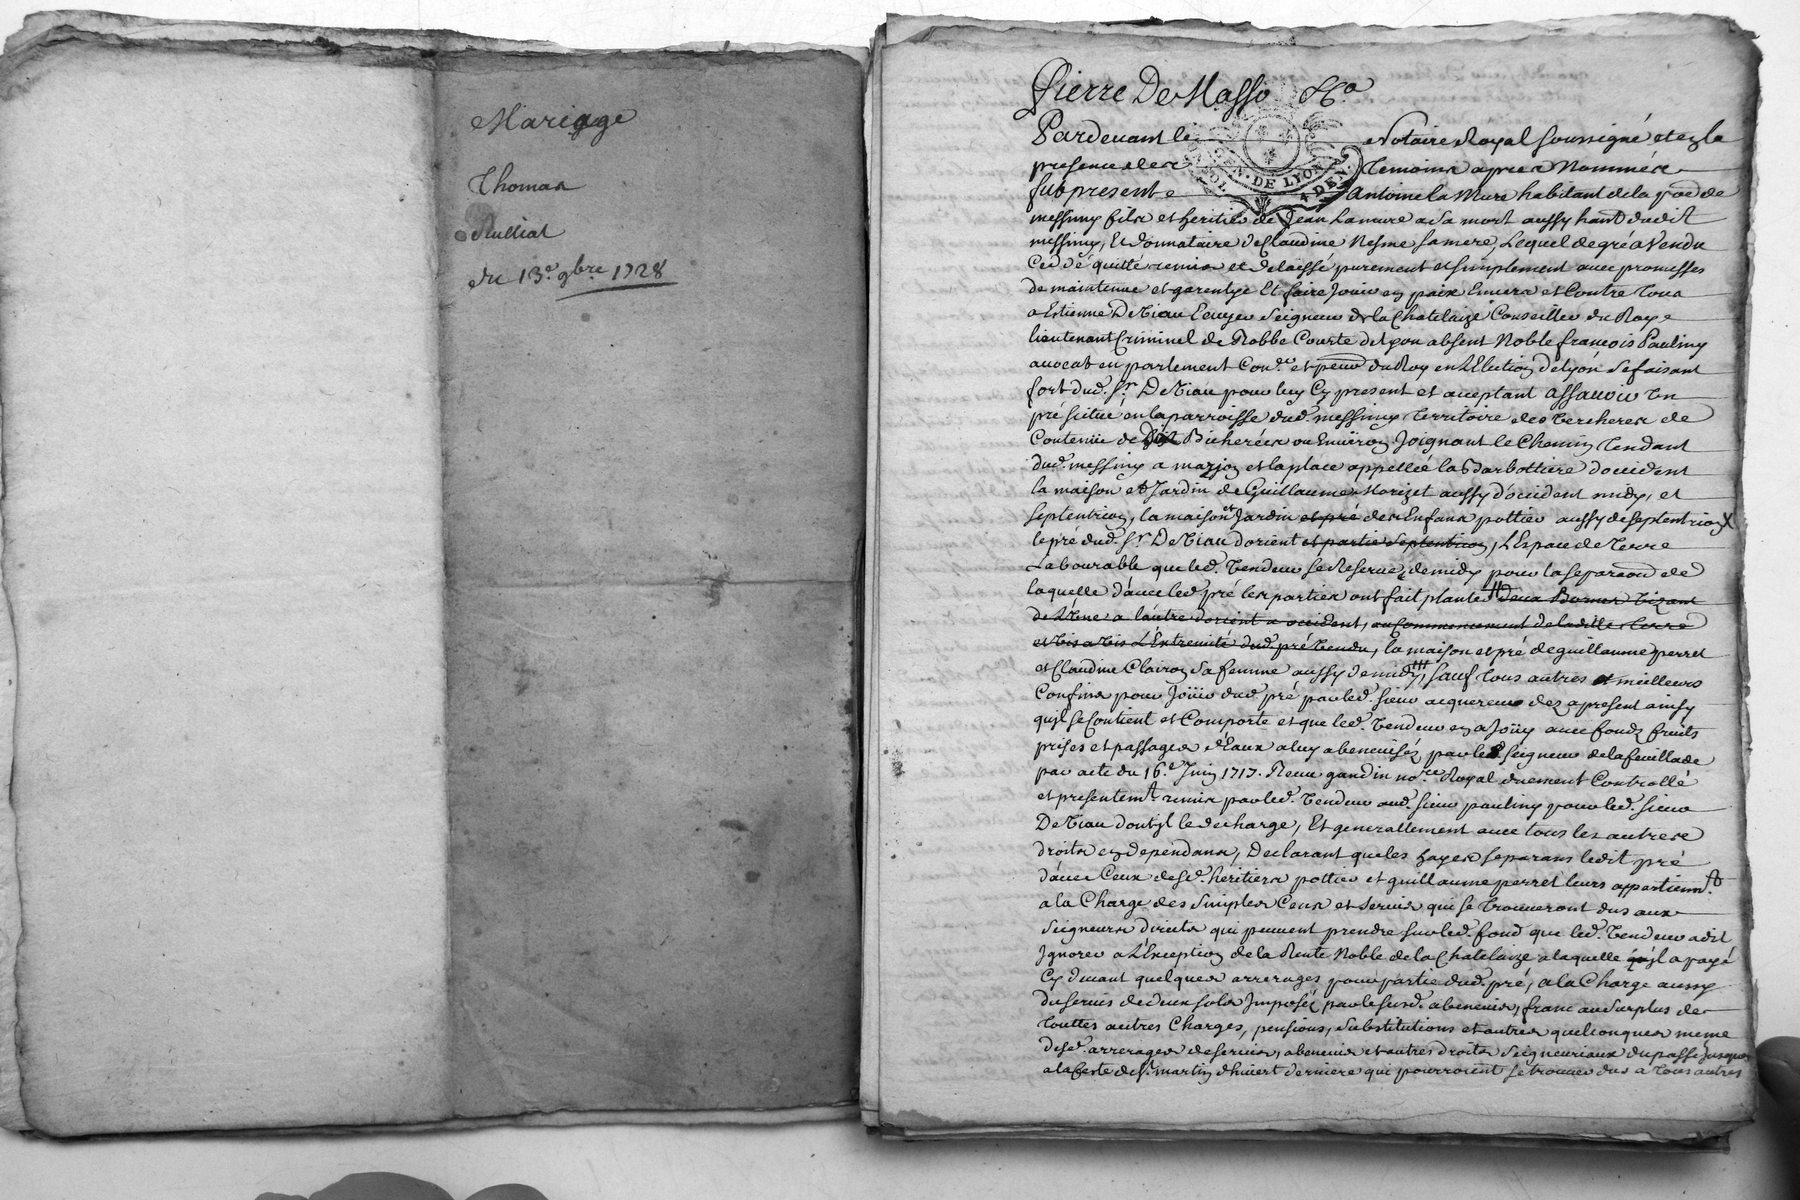 Mariage
Thomas
Rulliat
du 13.e 9bre 1728
Pierre De Masso
GEN. DE LYON
4 DEN.
Pardevant le Notaire Royal soussigné et en la
presence des Temoins apres Nommés
fut present Antoine la Mure habitant de la parr. de
messimy fils et heritier de Jean Lamure a sa mort aussy habt. dudit
messimy, et donnataire de Claudine Nesme sa mere, Lequel de gré a Vendu
Ceddé quitté remis et delaissé purement et simplement avec promesses
de maintenue et garentye et faire Jouir en paix Envers et Contre tous
a Estienne DeViau Ecuyer Seigneur de la Chatelaize Conseiller du Roy
lieutenant Criminel de Robbe Courte de Lyon absent Noble francois Pauliny
avocat en parlement Conr. et du Roy en L'Election de Lyon se faisant
fort dud. sr. DeViau pour luy Cy present et acceptant assavoir Un
pré situé en la parroisse dud. messimy territoire des Vercheres de
Contenüe de Bicherées ou Environ Joignant le Chemin tendant
dud. messimy a et la place appellée la Barbottiere d'occident
la maison et Jardin de Guillaume Morizet aussy d'occident midy, et
septentrion, la maison et Jardin et pré des Enfans pottier aussy de septentrion X
le pré dud. sr. DeViau d'orient et partie septentrion, L'Espace de terre
Labourable que led. Vendeur se Reserve de midy pour la separaon de
laquelle d'avec led. pré les parties ont fait planter # deux Bornes Vizant
de L'Une a l'autre d'orient a occident, au Commencement de ladite terre
et Vis a Vis L'Extremité dud. pré Vendu, la maison et pré de guillaume perret
et Claudine Clairon sa femme aussy de midy, sauf tous autres et meilleurs
Confins pour Joüir dud. pré par led. sieur acquereur dez a present ainsy
qu'jl se Contient et Comporte et que led. Vendeur en a Joüy avec fonds fruits
prises et passages d'Eaux a luy abenevisés par le seigneur de lafeuillade
par acte du 16.e Juin 1717. Receu gandin no.re Royal duement Controllé
et presentemt. remis par led. Vendeur aud. sieur pauliny pour led. sieur
DeViau dont jl le decharge, Et generallement avec tous les autres
droits et dependans, Declarant que les hayes separans ledit pré
d'avec Ceux desd. heritiers pottier et guillaume perret leurs appartiennt.
a la Charge des simples Cens et servis qui se trouveront dus aux
seigneurs directs qui peuvent prendre sur led. fond que led. Vendeur a dit
Jgnorer a L'Exception de la Rente Noble de la Chatelaize a laquelle jl a payé
Cy devant quelques arrerages pour partie dud. pré, a la Charge aussy
du servis de deux sols Jmposé par le susd. abenevis, franc au surplus de
touttes autres Charges, pensions, substitutions et autres quelconques même
desd. arrerages de servis, abenevis et autres droits seigneuriaux du passé jusques
a la feste de st. martin d'hivert derniere qui pourroient se trouver dus a tous autres